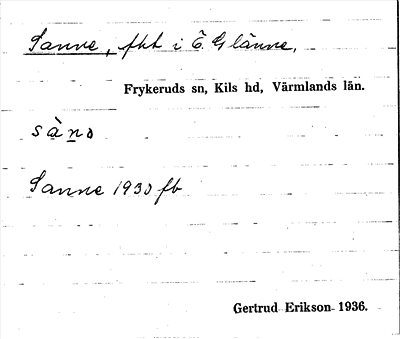 Sanne, fht i Ö. Glänne,
Frykeruds sn, Kils hd, Värmlands län.
sànə
Sanne 1930 fb
Gertrud Erikson 1936.